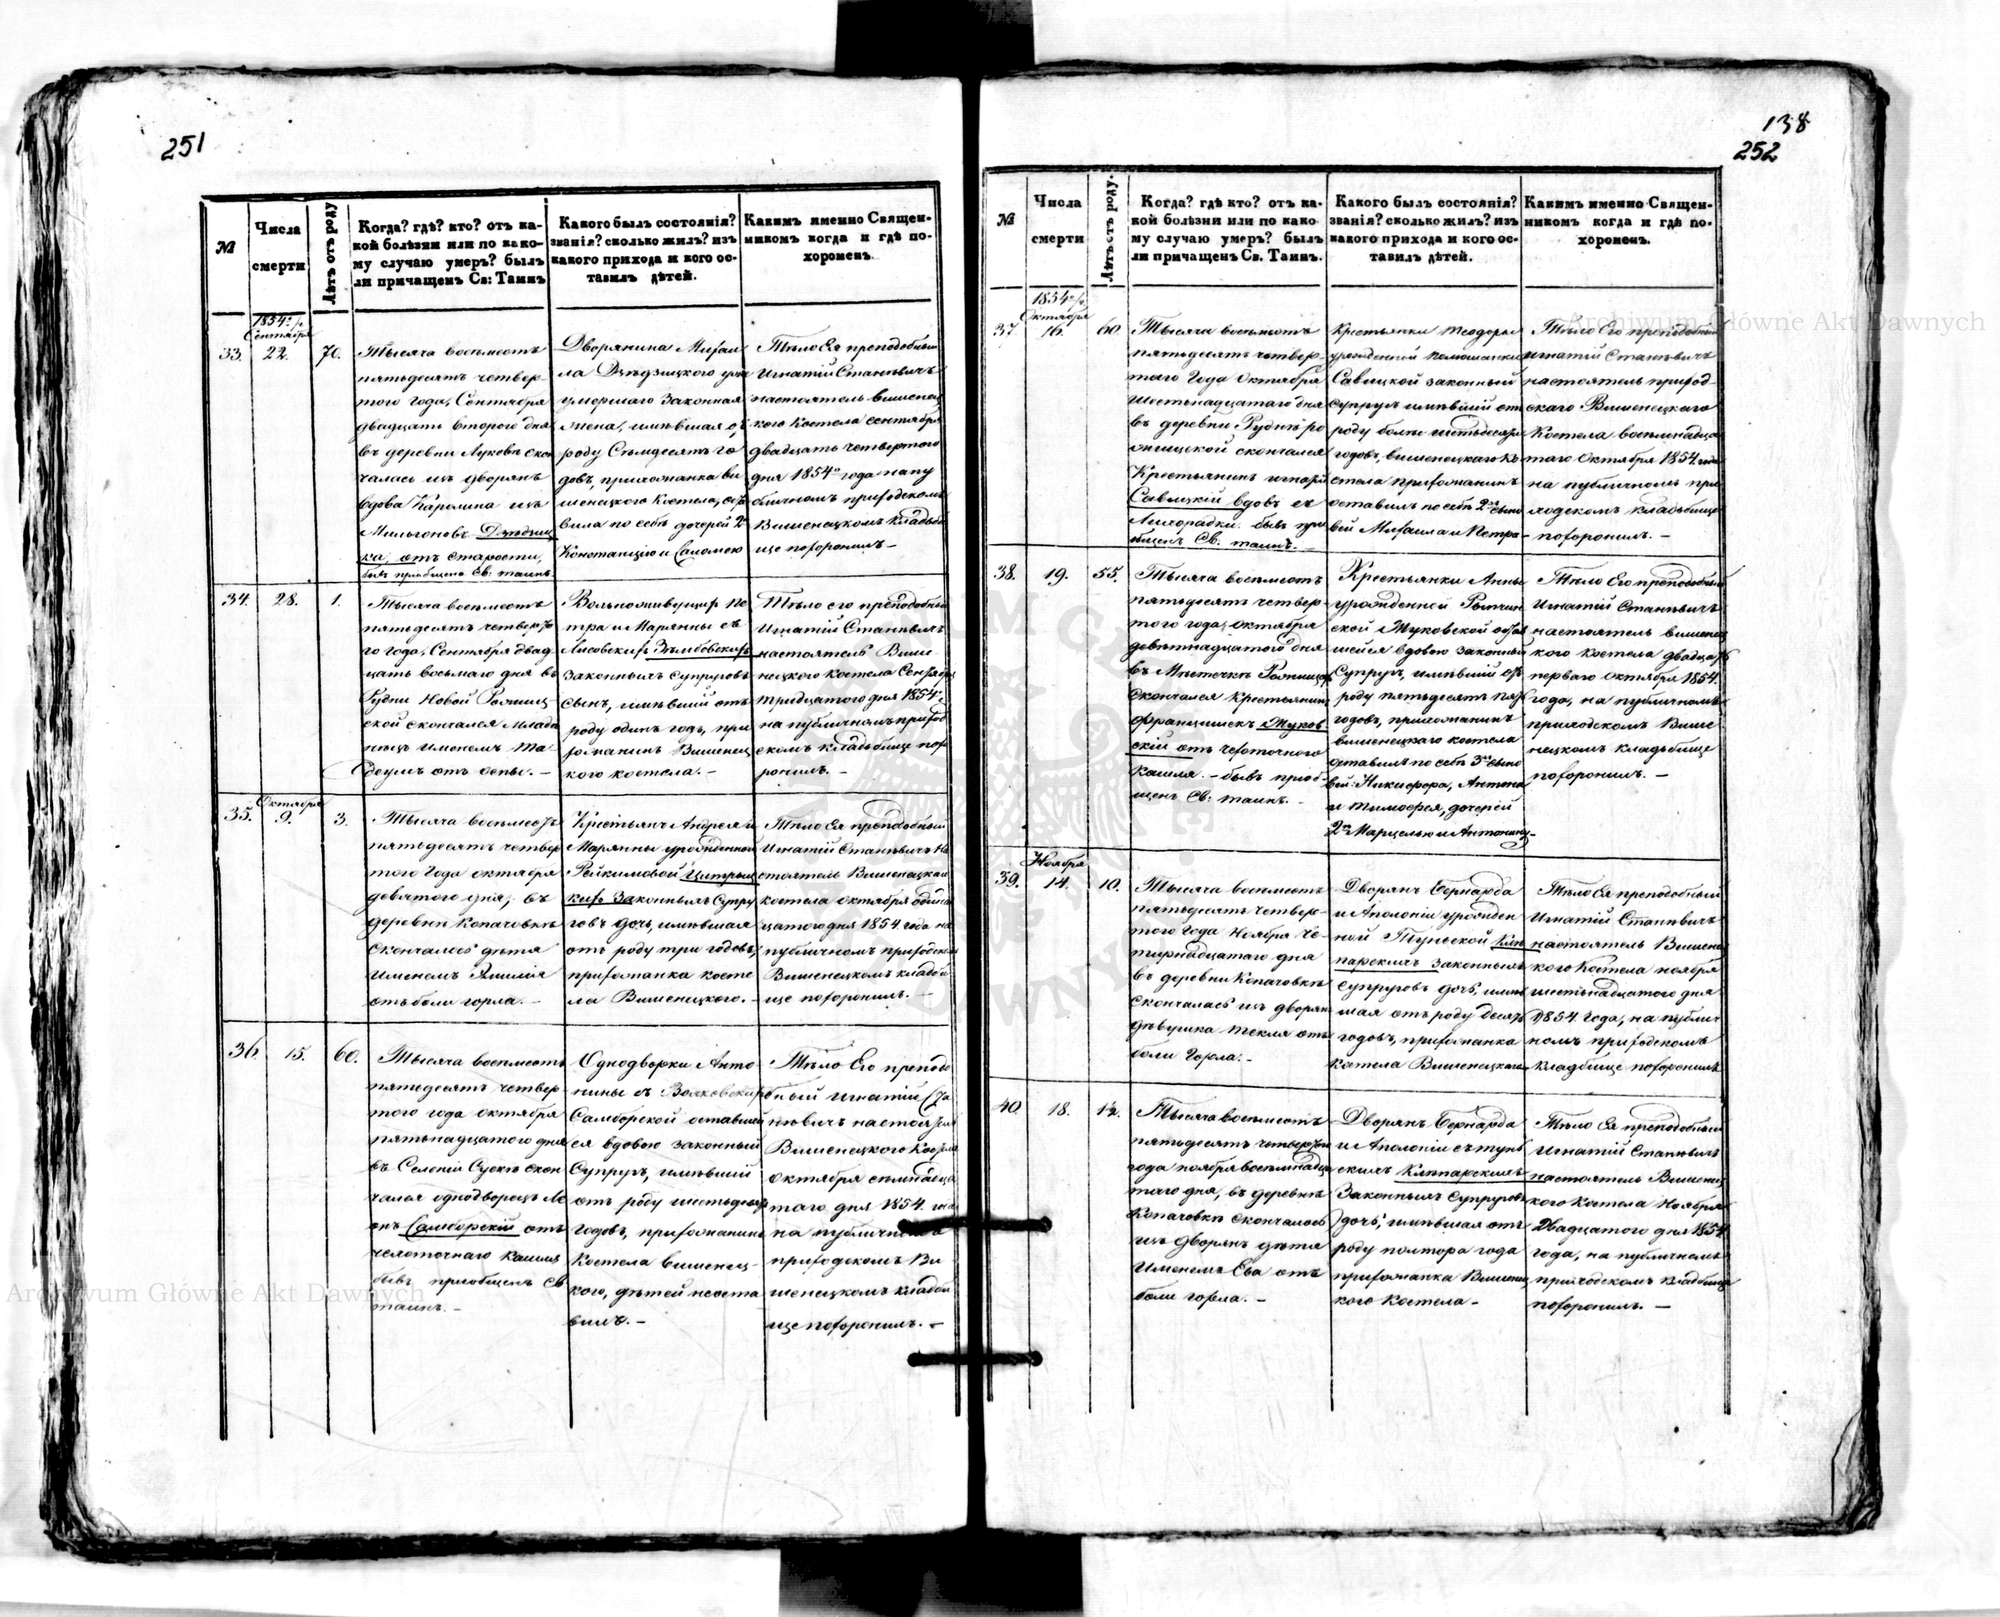 251
№
Числа
смерти
Лѣтъ отъ роду
Когда? гдѣ? кто? отъ ка-
кой болѣзни или по како-
му случаю умеръ? былъ
ли причащенъ Св: Таинъ
Какого былъ состоянія?
званія? сколько жилъ? изъ
какого прихода и кого ос-
тавилъ дѣтей.
Какимъ именно Священ-
никомъ когда и гдѣ по-
хороненъ.
1854 г.
Сентября
33.
22.
70.
Тысяча восемьсотъ
пятьдесятъ четвер-
того года, Сентября
двадцать втораго дня
въ деревни Луковъ скон
чалась изъ дворянъ
вдова Каролина изъ
отъ старости,
бывъ приобщена Св: таинъ.
Дворянина Михаи
ла
умершаго законная
жена, имѣвшая отъ
роду Семдесятъ го
довъ, прихожанка ви
шенецкого Костела, оста
вила по себѣ дочерей 2
Констанцію и Саломею
Тѣло Ея преподобный
Игнатій Станевичъ
настоятель вишенец
кого Костела сентября
двадцать четвертого
дня 1854 года на пу
бличномъ приходскомъ
Вишенецкомъ кладьби
ще похоронилъ –
34.
28.
1.
Тысяча восемьсотъ
пятьдесятъ четверто
го года, Сентября двад
цать восьмаго дня въ
Рудни Новой Рожищ
ской скончался млада
нецъ именемъ Та-
деушъ отъ оспы. –
Вольноживущихъ Пе
тра и Марянны съ
Лисовскихъ
Законныхъ Супруговъ
сынъ, имѣвшій отъ
роду одинъ годъ, при
хожанинъ Вишенец
кого костела. –
Тѣло его преподобный
Игнатій Станевичъ
настоятель Више
нецкого костела Сентября
тридцатого дня 1854 г.
на публичномъ приход
скомъ кладьбище похо
ронилъ. –
35.
Октября
9.
3.
Тысяча восемьсотъ
пятьдесятъ четвер
того Года октября
девятого дня, въ
деревни Копачовкѣ
Скончалось дѣтя
Именемъ Эмилія
отъ боли горла. –
Крестьянъ Андрея и
Марянны урожденной
Законныхъ Супру
говъ дочь, имѣвшая
отъ роду три годовъ,
прихожанка косте
ла Вишенецкого. –
Тѣло Ея преподобный
Игнатій Станевичъ на
стоятель Вишенецкаго
костела октября одинад
цатого дня 1854. года на
публичномъ приходскомъ
Вишенецкомъ кладьби
ще похоронилъ. –
36.
15.
60.
Тысяча восемьсотъ
пятьдесятъ четвер-
того года октября
пятьнадцатого дня
въ Селеніи Сускъ скон
чался однодворецъ Ле
онъ Самборскій отъ
чехоточнаго кашля
бывъ приобщенъ Св
таинъ. –
Однодворки Анто
нины съ
Самборской оставшей
ся вдовою законный
Супругъ, имѣвшій
отъ роду шестьдесятъ
годовъ, прихожанинъ
Костела вишенец-
кого, дѣтей неоста
вилъ. –
Тѣло Его преподо
бный Игнатій Ста
невичъ настоятель
Вишенецкого Костела
октября семнадца
того дня 1854. года
на публичномъ
приходскомъ Ви
шенецкомъ кладьби
ще похоронилъ. –
138
252
№
Числа
смерти
Лѣтъ отъ роду.
Когда? гдѣ? кто? отъ ка-
кой болѣзни или по како
му случаю умеръ? былъ
ли причащенъ Св. Таинъ.
Какого былъ состоянія?
званія? сколько жилъ? изъ
какого прихода и кого ос-
тавилъ дѣтей.
Какимъ именно Священ-
никомъ когда и гдѣ по-
хороненъ.
1854 г.
Октября
37.
16.
60
Тысяча восемьсотъ
пятьдесятъ четвер-
таго Года Октября
Шестьнадцатаго дня
въ деревни Рудни ро
жищской скончался
Крестьянинъ Игнатій
Савицкій вдовъ съ
Лихорадки. бывъ прі
общенъ Св. таинъ. –
Крестьянки Теодоры
урожденной
Савицкой законный
Супругъ имѣвшій отъ
роду болѣе шестьдесятъ
годовъ, вишенецкаго Ко
стела прихожанинъ
оставилъ по себѣ 2 сыно
вей Михаила и Петра –
Тѣло Его преподобный
Игнатій Станевичъ
настоятель приход-
скаго Вишенецкаго
Костела восемнадца
таго Октября 1854. года
на публичномъ при
ходскомъ кладьбище
похоронилъ. –
38.
19.
55.
Тысяча восемьсотъ
пятьдесятъ четвер-
того года, октября
девятнадцатого дня
въ Мѣстечкѣ Рожищахъ
скончался крестьянинъ
Францишекъ Жуков
скій отъ чехоточного
кашля. – бывъ приоб-
щенъ Св: таинъ. –
Крестьянки Анны
урожденной
Жуковской остав
шейся вдовою законный
Супругъ, имѣвшій отъ
роду пятьдесятъ пять
годовъ, прихожанинъ
вишенецкаго костела
оставилъ по себѣ 3 сыно
вей: Никифора, Антона
и Тимофея, дочерей
2 Марцелью и Антонину –
Тѣло Его преподобный
Игнатій Станевичъ
настоятель вишенец
кого костела двадцать
перваго октября 1854.
года, на публичномъ
приходскомъ Више
нецкомъ кладьбище
похоронилъ. –
Ноября
39.
14.
10.
Тысяча восемьсотъ
пятьдесятъ четвер-
того Года Ноября че-
тырнадцатаго дня
въ деревни Копачовкѣ
скончалась изъ дворянъ
дѣвушка Текля отъ
боли Горла. –
Дворянъ Бернарда
и Аполоніи урожден
ной
законныхъ
супруговъ дочь, имѣв
шая отъ роду десять
годовъ, прихожанка
костела Вишенецкаго
Тѣло Ея преподобный
Игнатій Станевичъ
настоятель Вишенец
кого Костела ноября
шестьнадцатого дня
1854. года, на публич-
номъ приходскомъ
кладбище похоронилъ
40.
18.
1½.
Тысяча восемьсотъ
пятьдесятъ четвертого
года ноября восемнадца
таго дня, въ деревни
Копачовкѣ скончалось
изъ дворянъ дѣтя
Именемъ Ева отъ
боли горла. –
Дворянъ Бернарда
и Аполоніи съ
Законныхъ Супруговъ
дочь, имѣвшая отъ
роду полтора года
прихожанка Вишенец
кого костела –
Тѣло Ея преподобный
Игнатій Станевичъ
настоятель Вишенец
кого Костела Ноября
Двадцатого дня 1854
года, на публичномъ
приходскомъ кладбище
похоронилъ. –
Archiwum Główne Akt Dawnych
Archiwum Główne Akt Dawnych